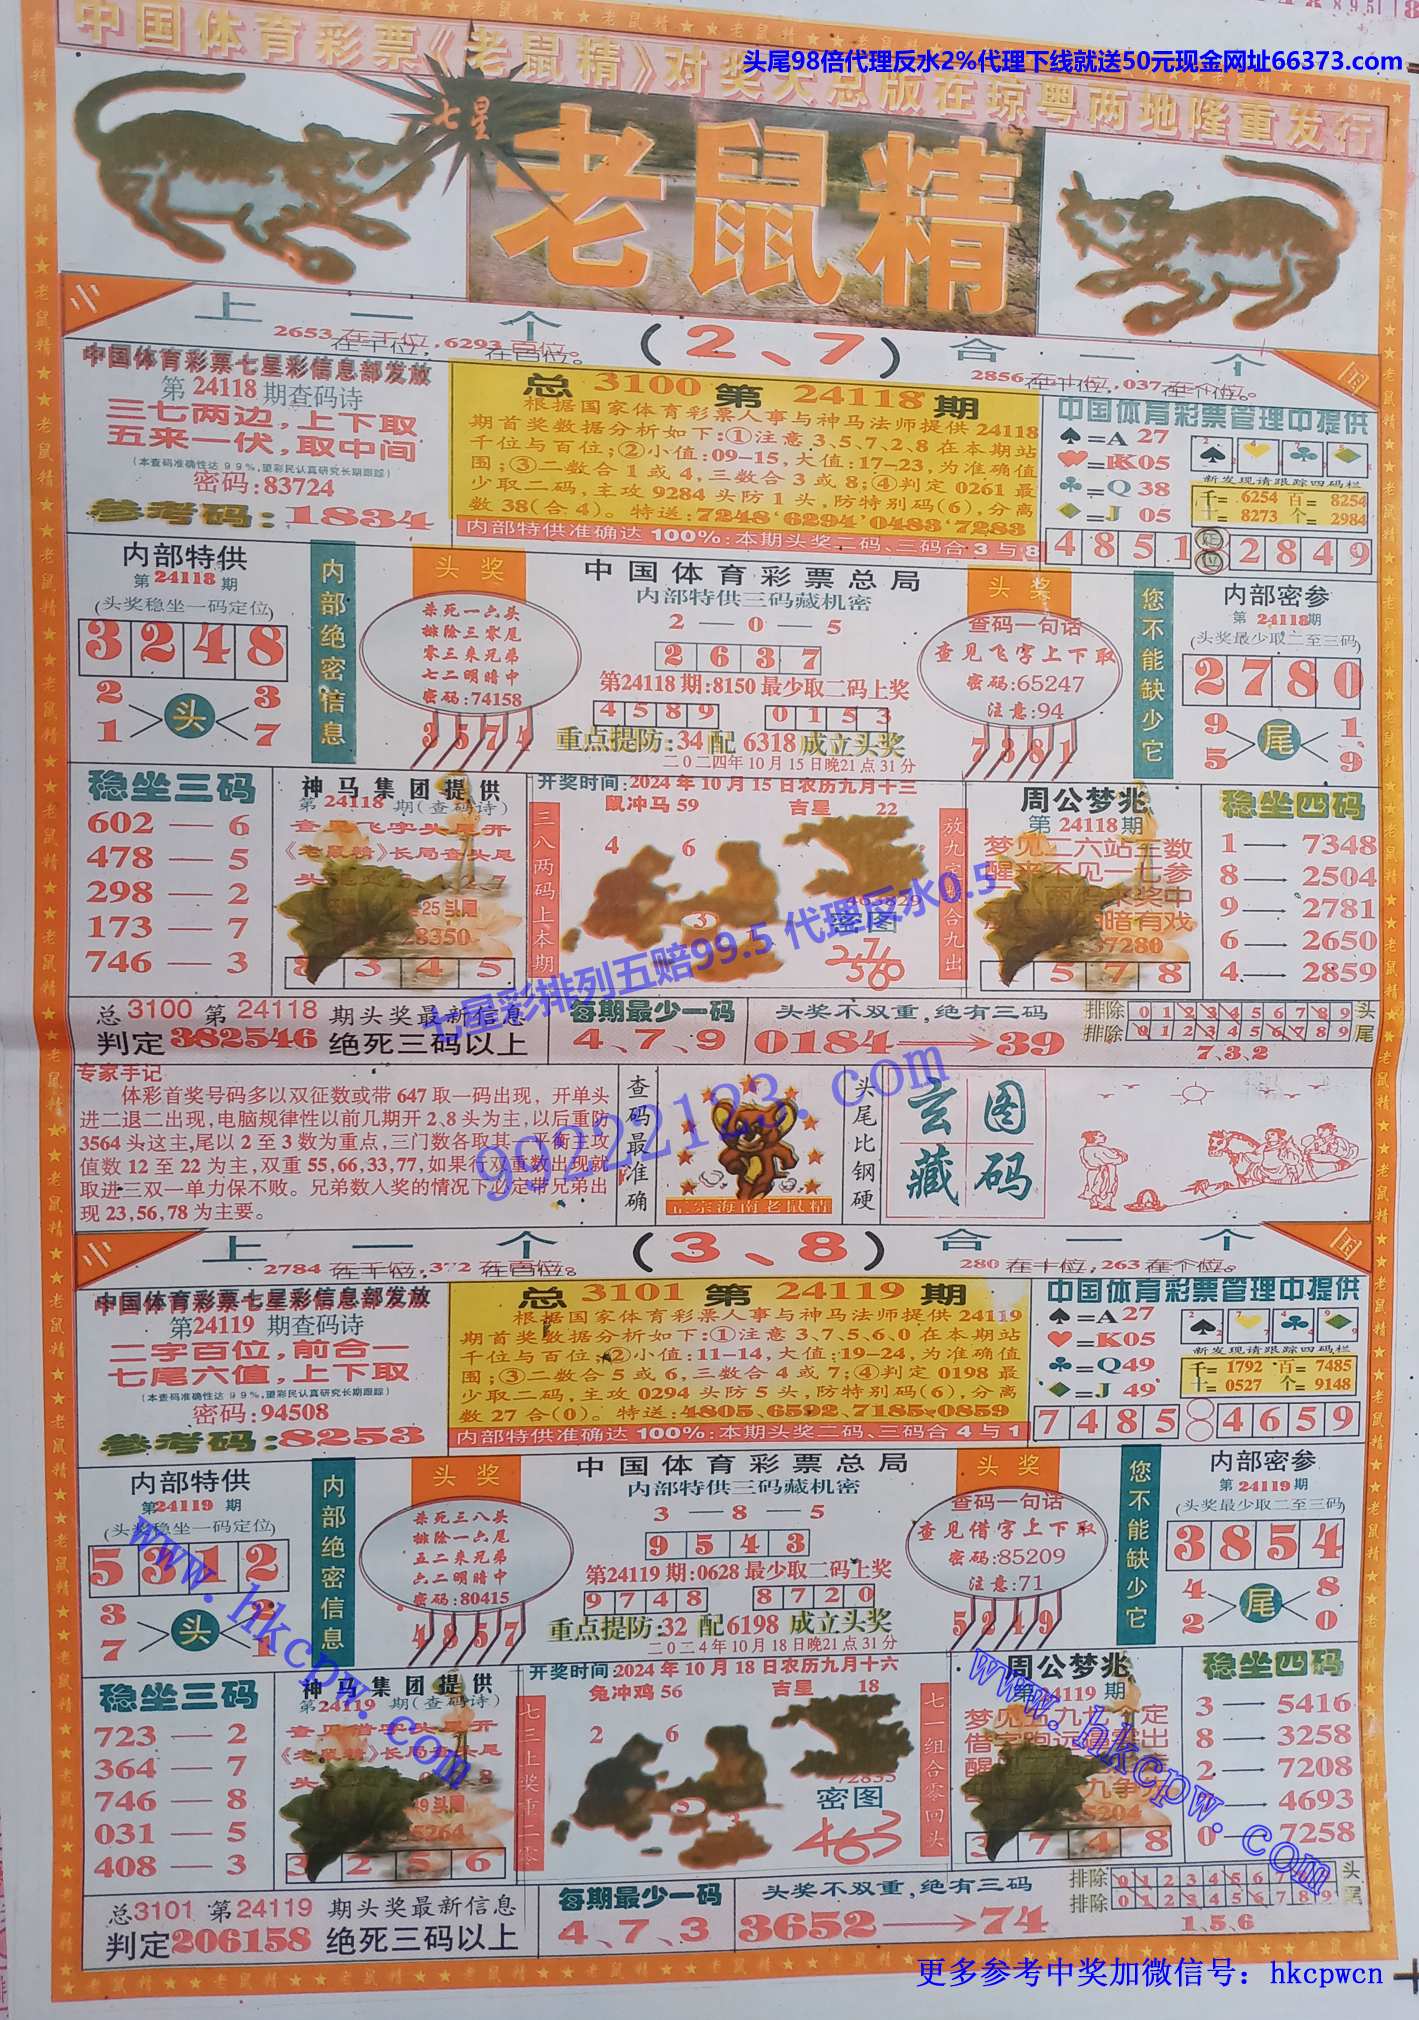 头尾98倍代理反水2%代理下线就送50元现金网址66373.com
中国体育彩票《老鼠精》对奖大总版在琼粤两地隆重发行
七星
老鼠精
小国
上一个(2、7)合一个
2653在千位,6293在百位。
2856在十位,037在个位。
中国体育彩票七星彩信息部发放
第24118期查码诗
三七两边,上下取
五来一伏,取中间
(本查码准确性达99%,望彩民认真研究长期跟踪)
密码:83724
参考码:1834
总3100第24118期
根据国家体育彩票人事与神马法师提供24118
期首奖数据分析如下:①注意3、5、7、2、8在本期站
千位与百位;②小值:09-15,大值:17-23为准确值
围;③二数合1或4,三数合3或8;④判定0261最
少取二码,主攻9284头防1头,防特别码(6),分离
数38(合4)。特送:7248'6294'0483'7283
内部特供准确达100%:本期头奖二码、三码合3与8
中国体育彩票管理中提供
♠=A 27
♥=K05
♣=Q 38
♦=J 05
新发现请跟踪四码栏
千=6254百=8254
十=8273个=2984
4851定位2849
内部特供
第24118期
(头奖稳坐一码定位)
3248
2 3
头
1 7
内部绝密信息
头奖
杀死一六头
排除三零尾
零三来兄弟
七二明暗中
密码:74158
3574
中国体育彩票总局
内部特供三码藏机密
2—0—5
2637
第24118期:8150最少取二码上奖
4589 0153
重点提防:34配6318成立头奖
二0二四年10月15日晚21点31分
头奖
查码一句话
查见飞字上下取
密码:65247
注意:94
7381
您不能缺少它
内部密参
第24118期
(头奖最少取二至三码)
2780
9 1
尾
5 9
稳坐三码
602—6
478—5
298—2
173—7
746—3
神马集团提供
第24118期(查码诗)
查见飞字头尾开
《老鼠精》长局查头尾
8345
三八两码上本期
开奖时间:2024年10月15日农历九月十三
鼠冲马59 吉星 22
4 6
3
密图
放九定数合九出
周公梦兆
第24118期
578
稳坐四码
1—7348
8—2504
9—2781
6—2650
4—2859
七星彩排列五赔99.5 代理反水0.5
总3100第24118期头奖最新信息
判定382546绝死三码以上
每期最少一码
4、7、9
头奖不双重,绝有三码
0184→39
排除0123456789头
排除0123456789尾
7、3、2
专家手记
体彩首奖号码多以双征数或带647取一码出现,开单头
进二退二出现,电脑规律性以前几期开2、8头为主,以后重防
3564头这主,尾以2至3数为重点,三门数各取其一平衡主攻
值数12至22为主,双重55,66,33,77,如果行双重数出现就
取进三双一单力保不败。兄弟数人奖的情况下必定带兄弟出
现23,56,78为主要。
查码最准确
正宗海南老鼠精
头尾比钢硬
玄图
藏码
99222123.com
小国
上一个(3、8)合一个
2784在千位,372在百位。
280在十位,263在个位。
中国体育彩票七星彩信息部发放
第24119期查码诗
二字百位,前合一
七尾六值,上下取
(本查码准确性达99%,望彩民认真研究长期跟踪)
密码:94508
参考码:8253
总3101第24119期
根据国家体育彩票人事与神马法师提供24119
期首奖数据分析如下:①注意3、7、5、6、0在本期站
千位与百位;②小值:11-14,大值:19-24,为准确值
围;③二数合5或6,三数合4或7;④判定0198最
少取二码,主攻0294头防5头,防特别码(6),分离
数27合(0)。特送:4805、6592、7185、0859
内部特供准确达100%:本期头奖二码、三码合4与1
中国体育彩票管理中提供
♠=A27
♥=K05
♣=Q49
♦=J 49
新发现请跟踪四码栏
千=1792百=7485
十=0527个=9148
7485 4659
内部特供
第24119期
(头奖稳坐一码定位)
5312
3
头
7
内部绝密信息
头奖
杀死三八头
排除一六尾
五二来兄弟
六二明暗中
密码:80415
4857
中国体育彩票总局
内部特供三码藏机密
3—8—5
9543
第24119期:0628最少取二码上奖
9748 8720
重点提防:32配6198成立头奖
二0二4年10月18日晚21点31分
头奖
查码一句话
查见借字上下取
密码:85209
注意:71
5249
您不能缺少它
内部密参
第24119期
(头奖最少取二至三码)
3854
4 8
尾
2 0
稳坐三码
723—2
364—7
746—8
031—5
408—3
神马集团提供
第24119期(查码诗)
3256
七三上奖重二零
开奖时间:2024年10月18日农历九月十六
兔冲鸡56 吉星 18
2 6
5
3
密图
463
七一组合零回头
周公梦兆
第24119期
3748
稳坐四码
3—5416
8—3258
2—7208
—4693
0—7258
www.hkcpw.com
www.hkcpw.com
总3101第24119期头奖最新信息
判定206158绝死三码以上
每期最少一码
4、7、3
头奖不双重,绝有三码
3652→74
排除0123456789头
排除0123456789尾
1、5、6
更多参考中奖加微信号：hkcpwcn